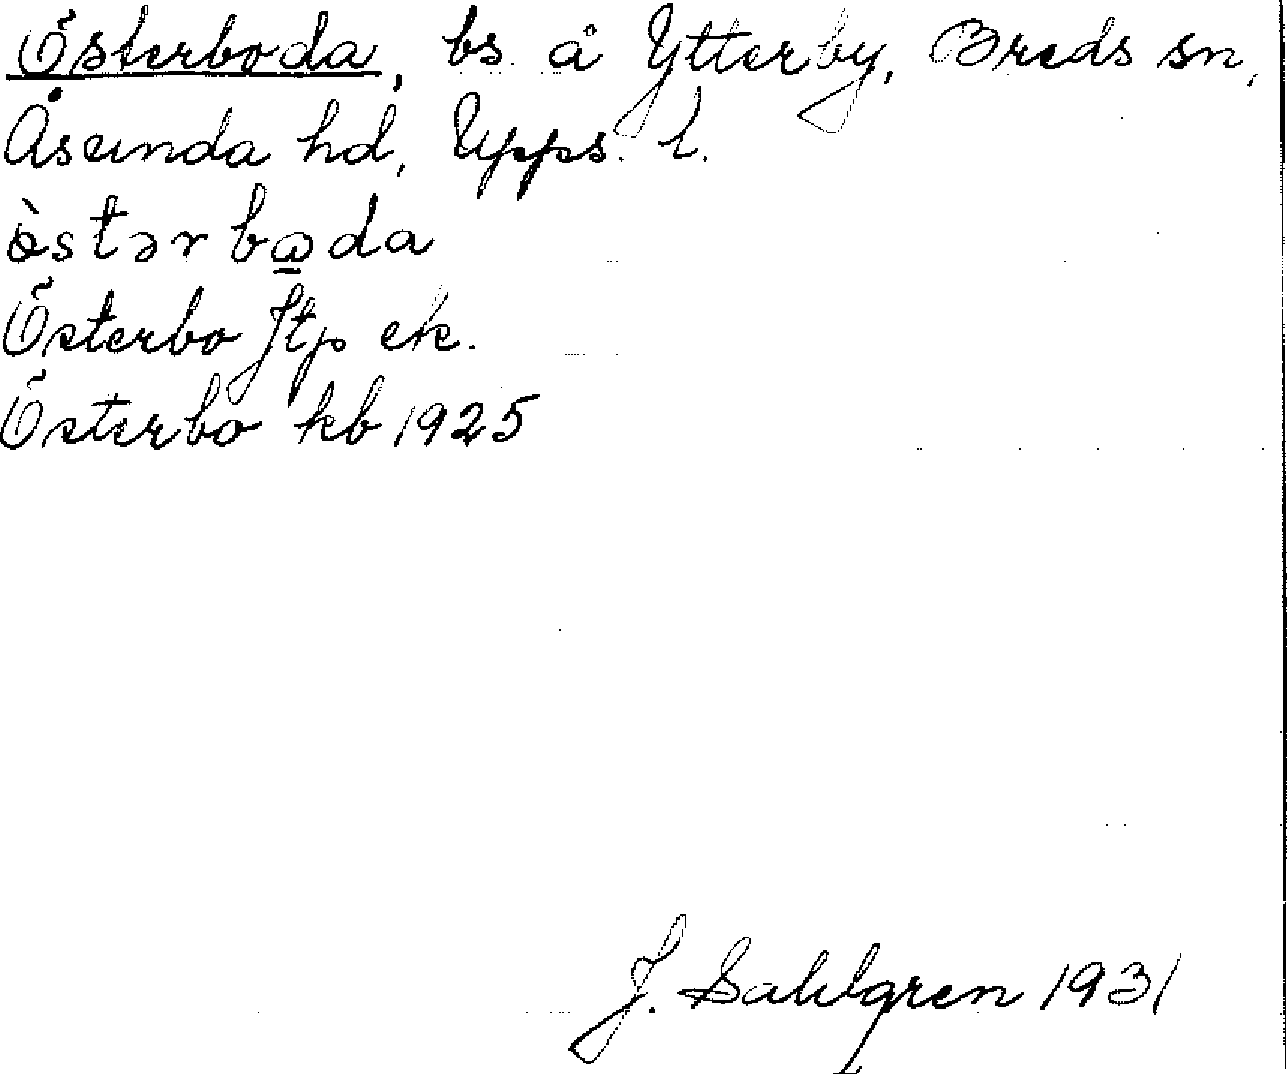 Österboda, bs å Ytterby, Breds sn,
Åsunda hd, Upps. l.
ö̀stərbωda
Österbo Jtp ek.
Österbo kb 1925
J. Sahlgren 1931